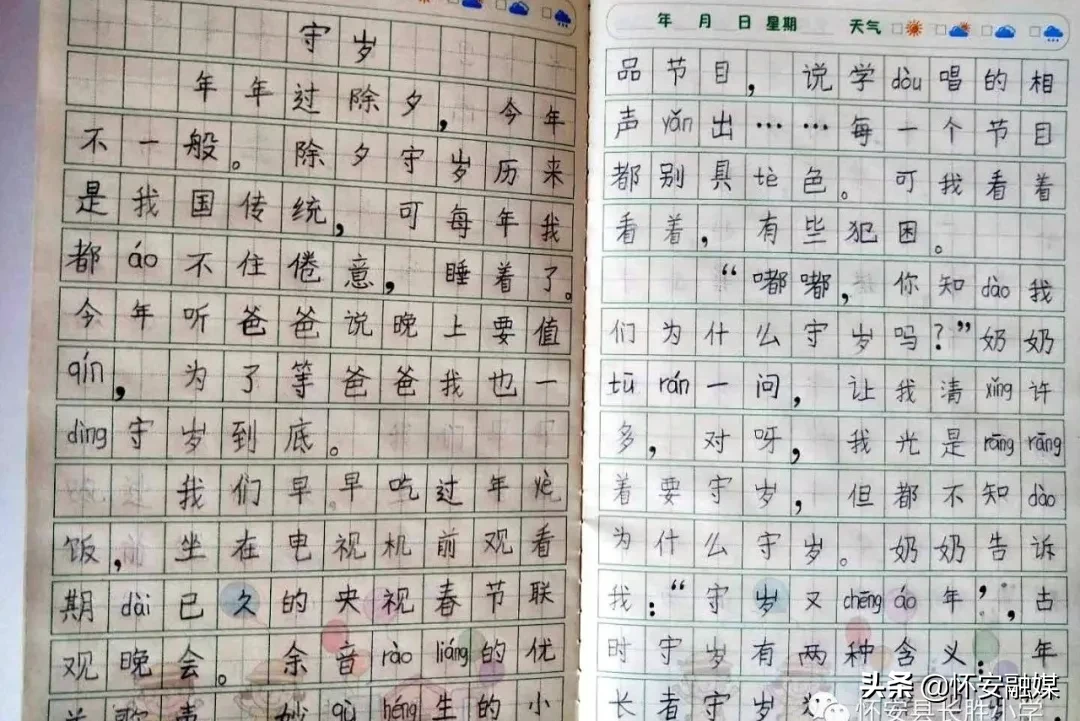 守岁
年年过除夕，今年
不一般。除夕守岁历来
是我国传统，可每年我
都áo不住倦意，睡着了。
今年听爸爸说晚上要值
qín，为了等爸爸我也一
dìng守岁到底。
我们早早吃过年yè
饭，坐在电视机前观看
期dài已久的央视春节联
观晚会。余音rào liáng的优
美歌声，妙qù héng生的小
年 月 日 星期 天气
品节目，说学dòu唱的相
声yǎn出……每一个节目
都别具tè色。可我看着
看着，有些犯困。
“嘟嘟，你知dào我
们为什么守岁吗？”奶奶
tū rán一问，让我清xǐng许
多，对呀，我光是rāng rāng
着要守岁，但都不知dào
为什么守岁。奶奶告诉
我：“守岁又chēng áo年’，古
时守岁有两种含义：年
长者守岁
头条 @怀安融媒
怀安县长胜小学